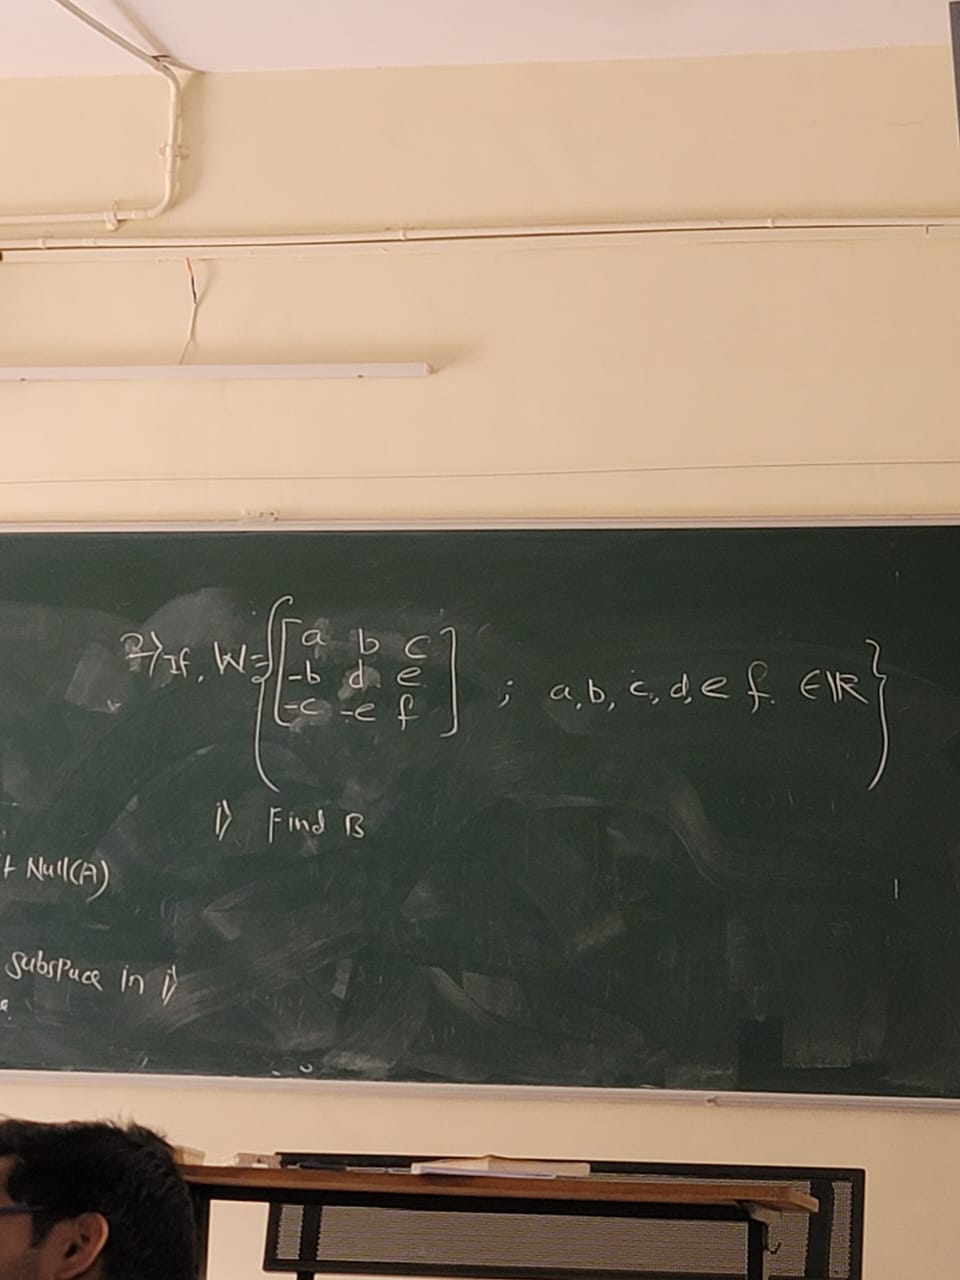 2) If, W = { [ a b c
-b d e
-c -e f ] ; a, b, c, d, e f. ∈ ℝ }
i) Find B
Null(A)
subspace in i)